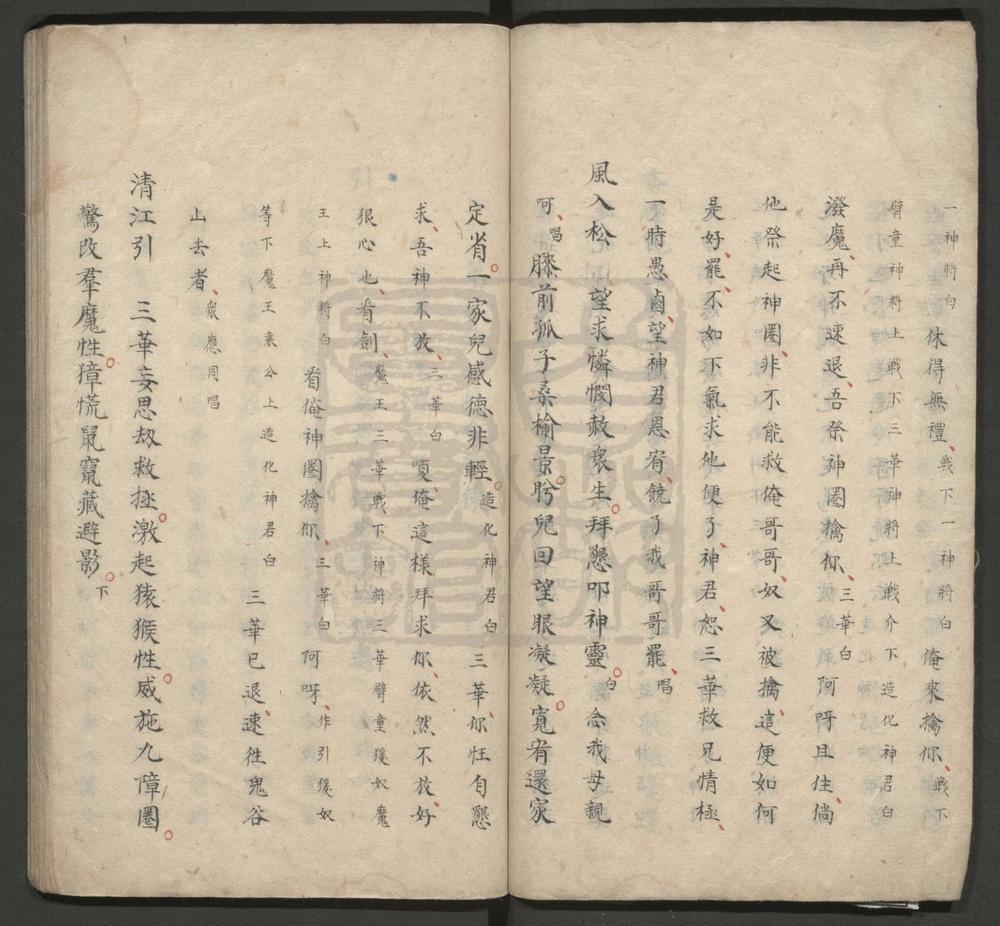 一神將白休得無禮戰下一神將白俺來擒你戰下
臂童神將上戰下三華神將上戰介下造化神君白
潑魔再不速退吾祭神圈擒你三華白阿呀且住倘
他祭起神圈非不能救俺哥哥奴又被擒這便如何
是好罷不如下氣求他便了神君恕三華救兄情極
一時愚鹵望神君恩宥饒了我哥哥罷唱
風入松 望求憐憫赦衆生拜懇叩神靈白念我母親
呵唱膝前孤子桑榆景盻兒回望眼凝凝寬宥還家
定省一家兒感德非輕造化神君白三華你枉自懇
求吾神不放三華白嗄俺這樣拜求你依然不放好
狠心也看劍魔王三華戰下神將三華臂童猨奴魔
王上神將白看俺神圈擒你三華白阿呀作引猨奴
等下魔王袁公上造化神君白三華已退速徃鬼谷
山去者衆應同唱
清江引 三華妄思刼救拯激起猿猴性威施九障圈
驚改羣魔性獐慌鼠竄藏避影下